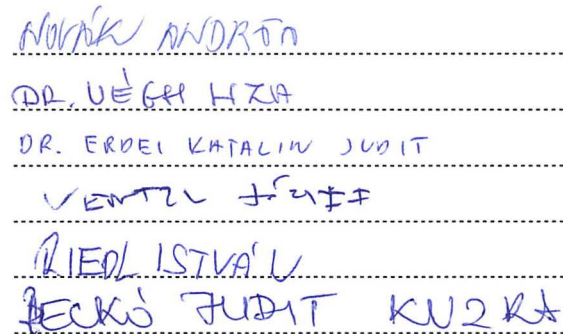 NOVÁK ANDREA
DR. VÉGH
DR. ERDEI KATALIN JUDIT
VENTZL JÓZSEF
RIEDL ISTVÁN
JUDIT